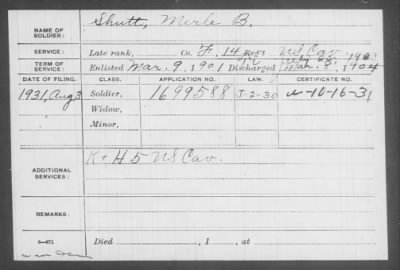 NAME OF SOLDIER: Shutt, Merle B.
SERVICE: Late rank, Co. F, 14 Reg't US Cav.
TERM OF SERVICE: Enlisted Mar. 9, 1901 Discharged Mar. 8, 1904
DATE OF FILING. CLASS. APPLICATION NO. LAW. CERTIFICATE NO.
1931, Aug 3 Soldier, 1699588 J-2-30 10-16-31
Widow,
Minor,
ADDITIONAL SERVICES: K + H 5 US Cav.
REMARKS:
Died , 1 , at